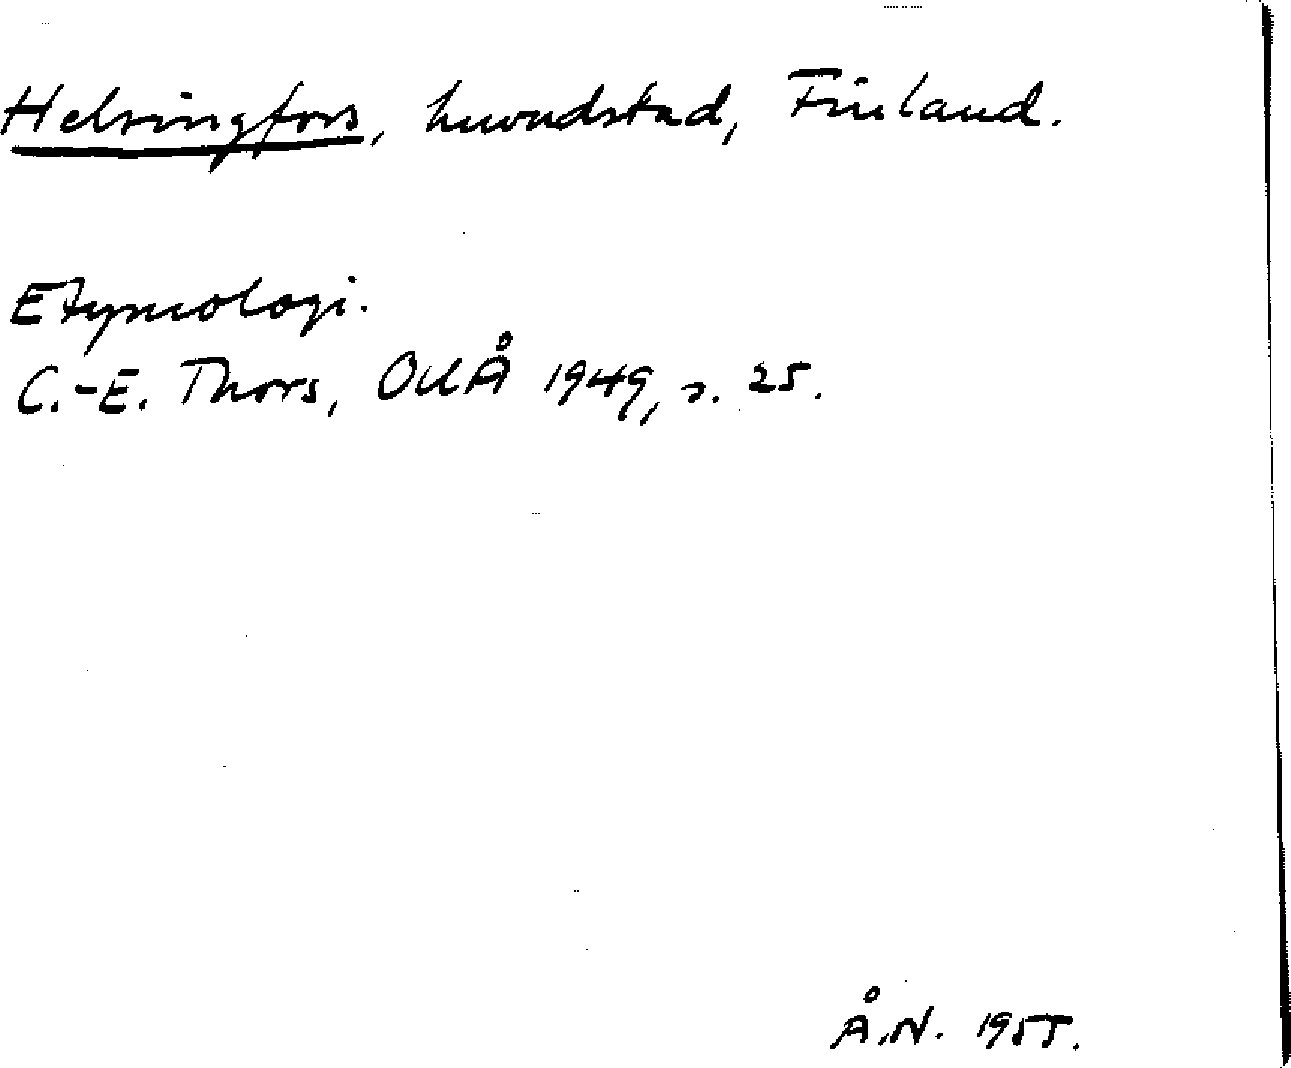 Helsingfors, huvudstad, Finland.
Etymologi.
C.-E. Thors, OUÅ 1949, s. 25.
Å.N. 1955.